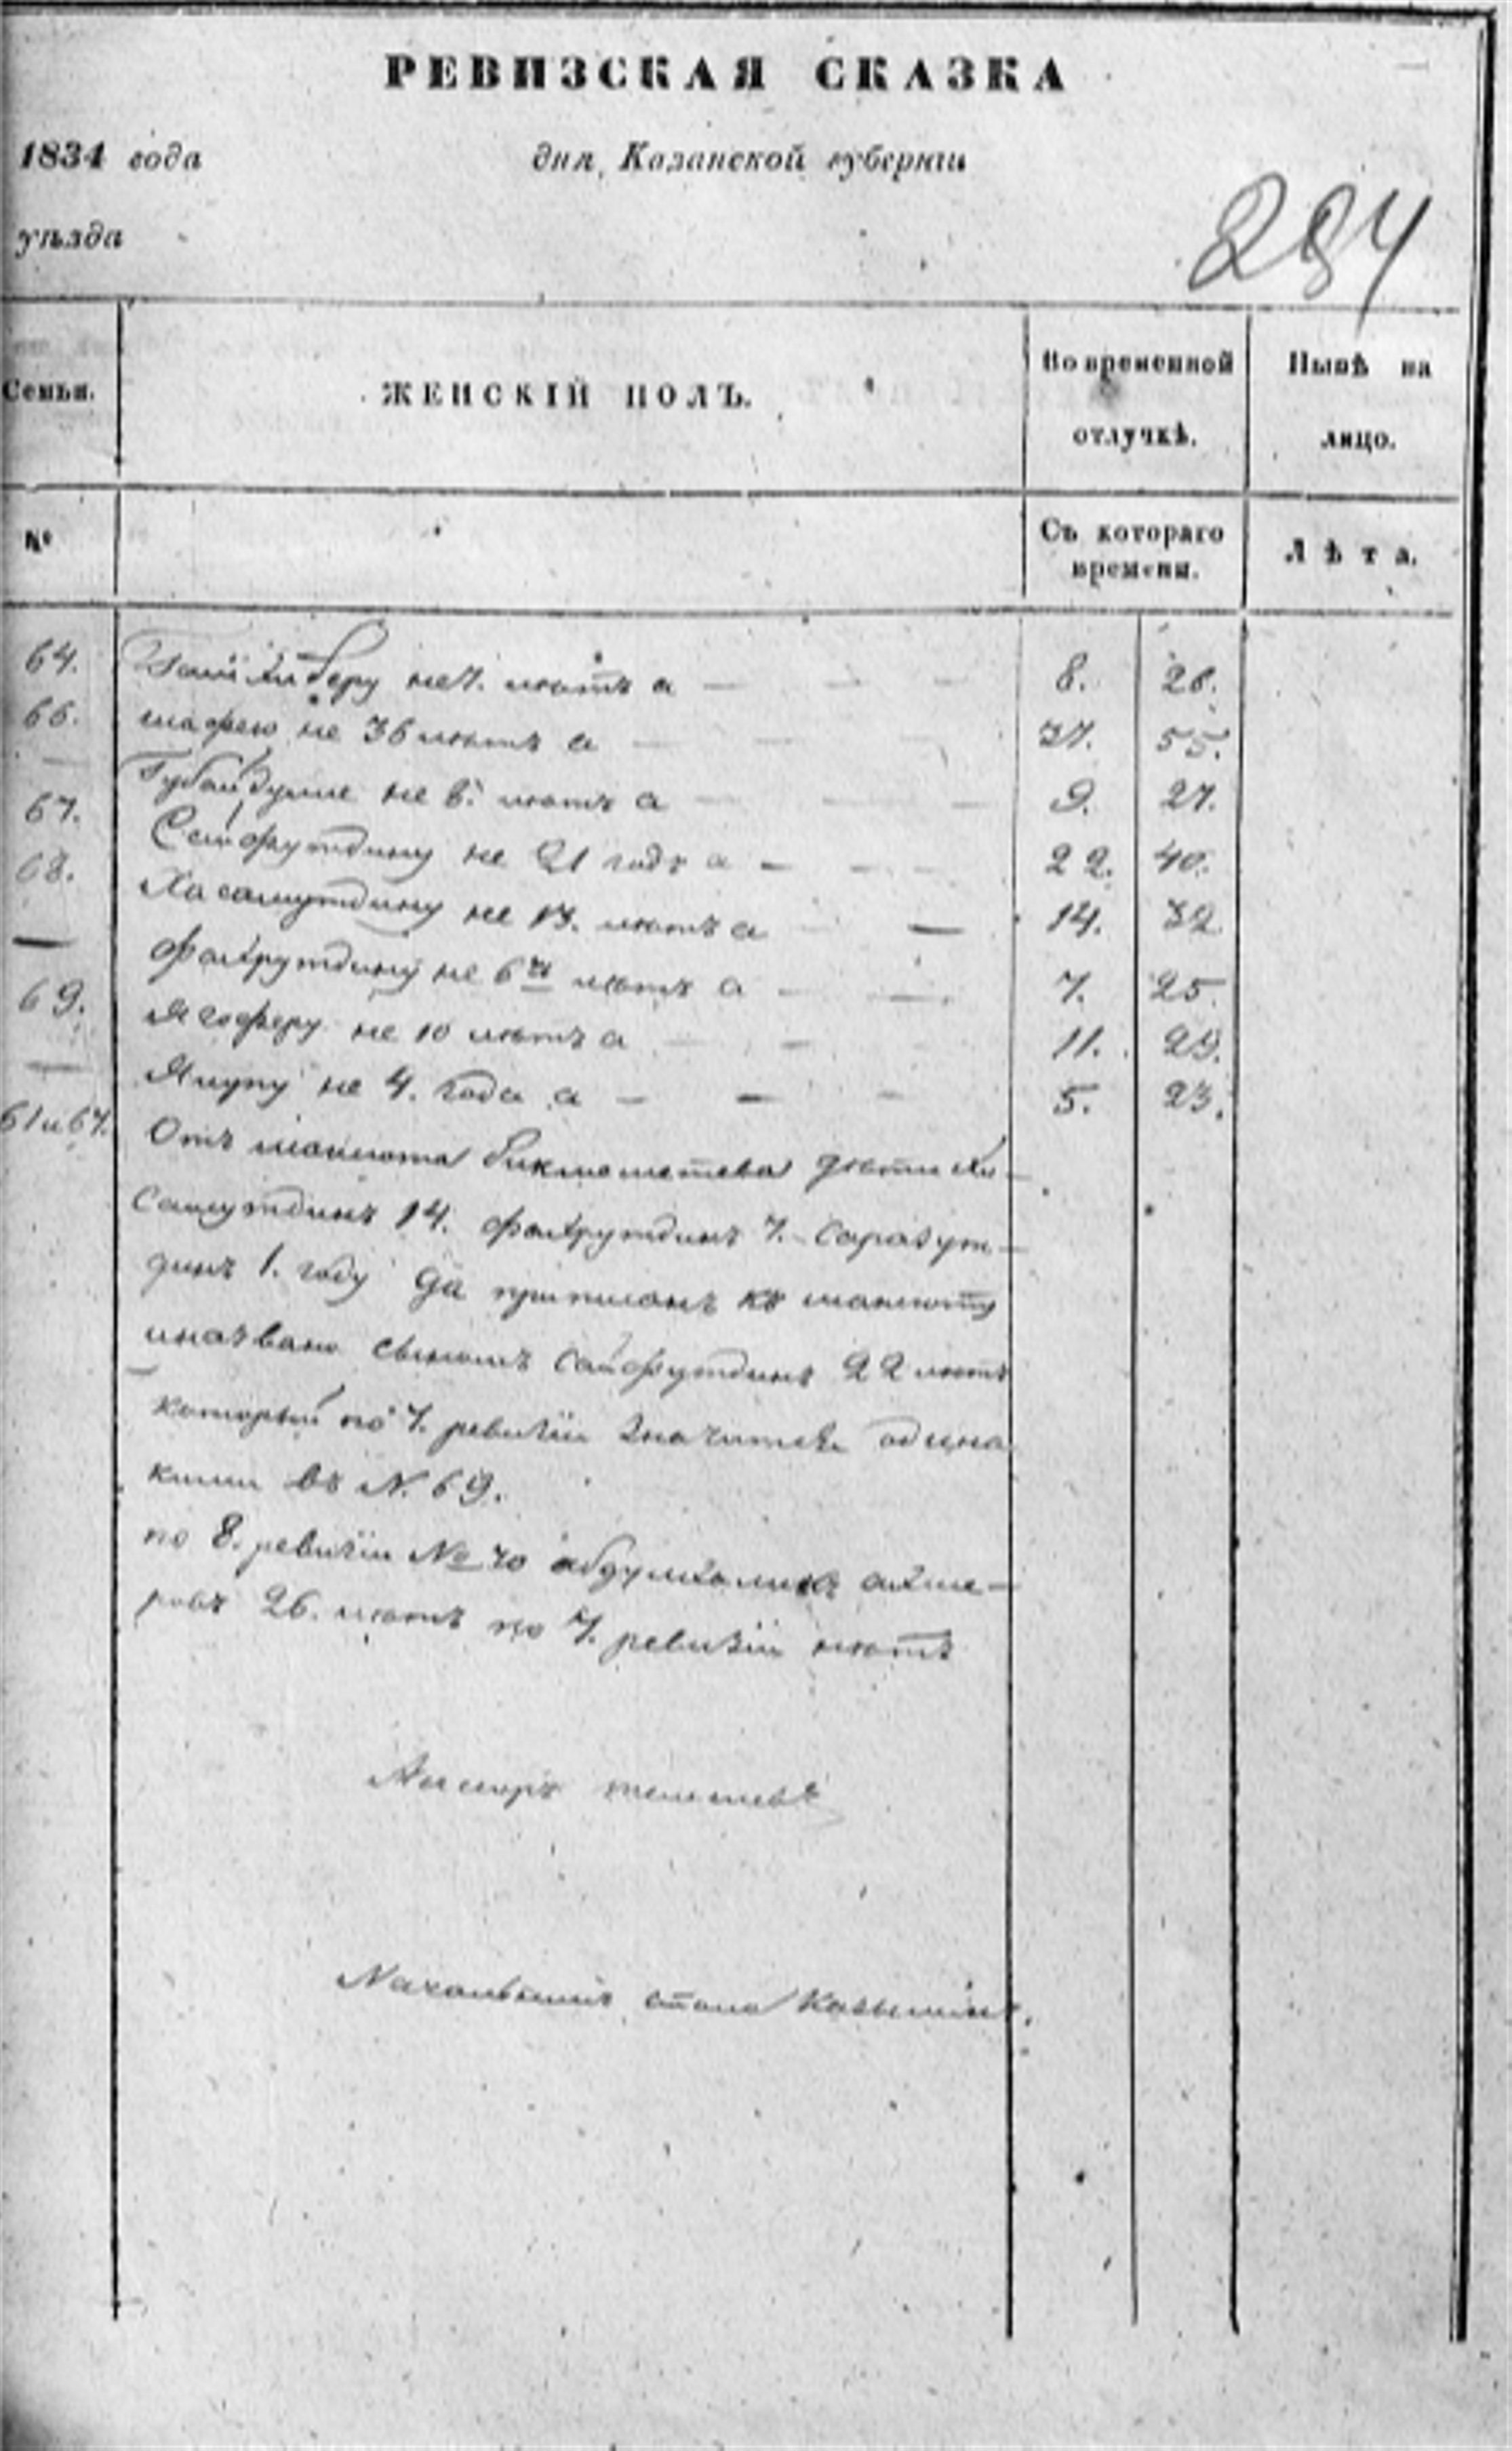 РЕВИЗСКАЯ СКАЗКА
1834 года дня, Казанской губернии
уѣзда
284
Семьи. ЖЕНСКІЙ ПОЛЪ. Во временной отлучкѣ. Нынѣ на лицо.
№ Съ котораго времени. Лѣта.
64. не 7. лѣтъ а — 8. 26.
66. не 36 лѣтъ а — 37. 55.
— Губайдулле не 8. лѣтъ а — 9. 27.
67. Сейфутдину не 21 годъ а — 22. 40.
68. Хасамутдину не 13. лѣтъ а — 14. 32
— Фахрутдину не 6ти лѣтъ а — 7. 25.
69. Ягоферу не 10 лѣтъ а — 11. 29.
— Якупу не 4. года а — 5. 23.
61 и 67. Отъ Бикмеметева дѣти Хи-
самутдинъ 14. Фахрутдинъ 7.
динъ 1. году да приписанъ къ
и названъ сыномъ Сайфутдинъ 22 лѣтъ
который по 7. ревизіи значится
въ N. 69.
по 8. ревизіи № 70
ровъ 26. лѣтъ по 7. ревизіи нѣтъ
Начальникъ стола